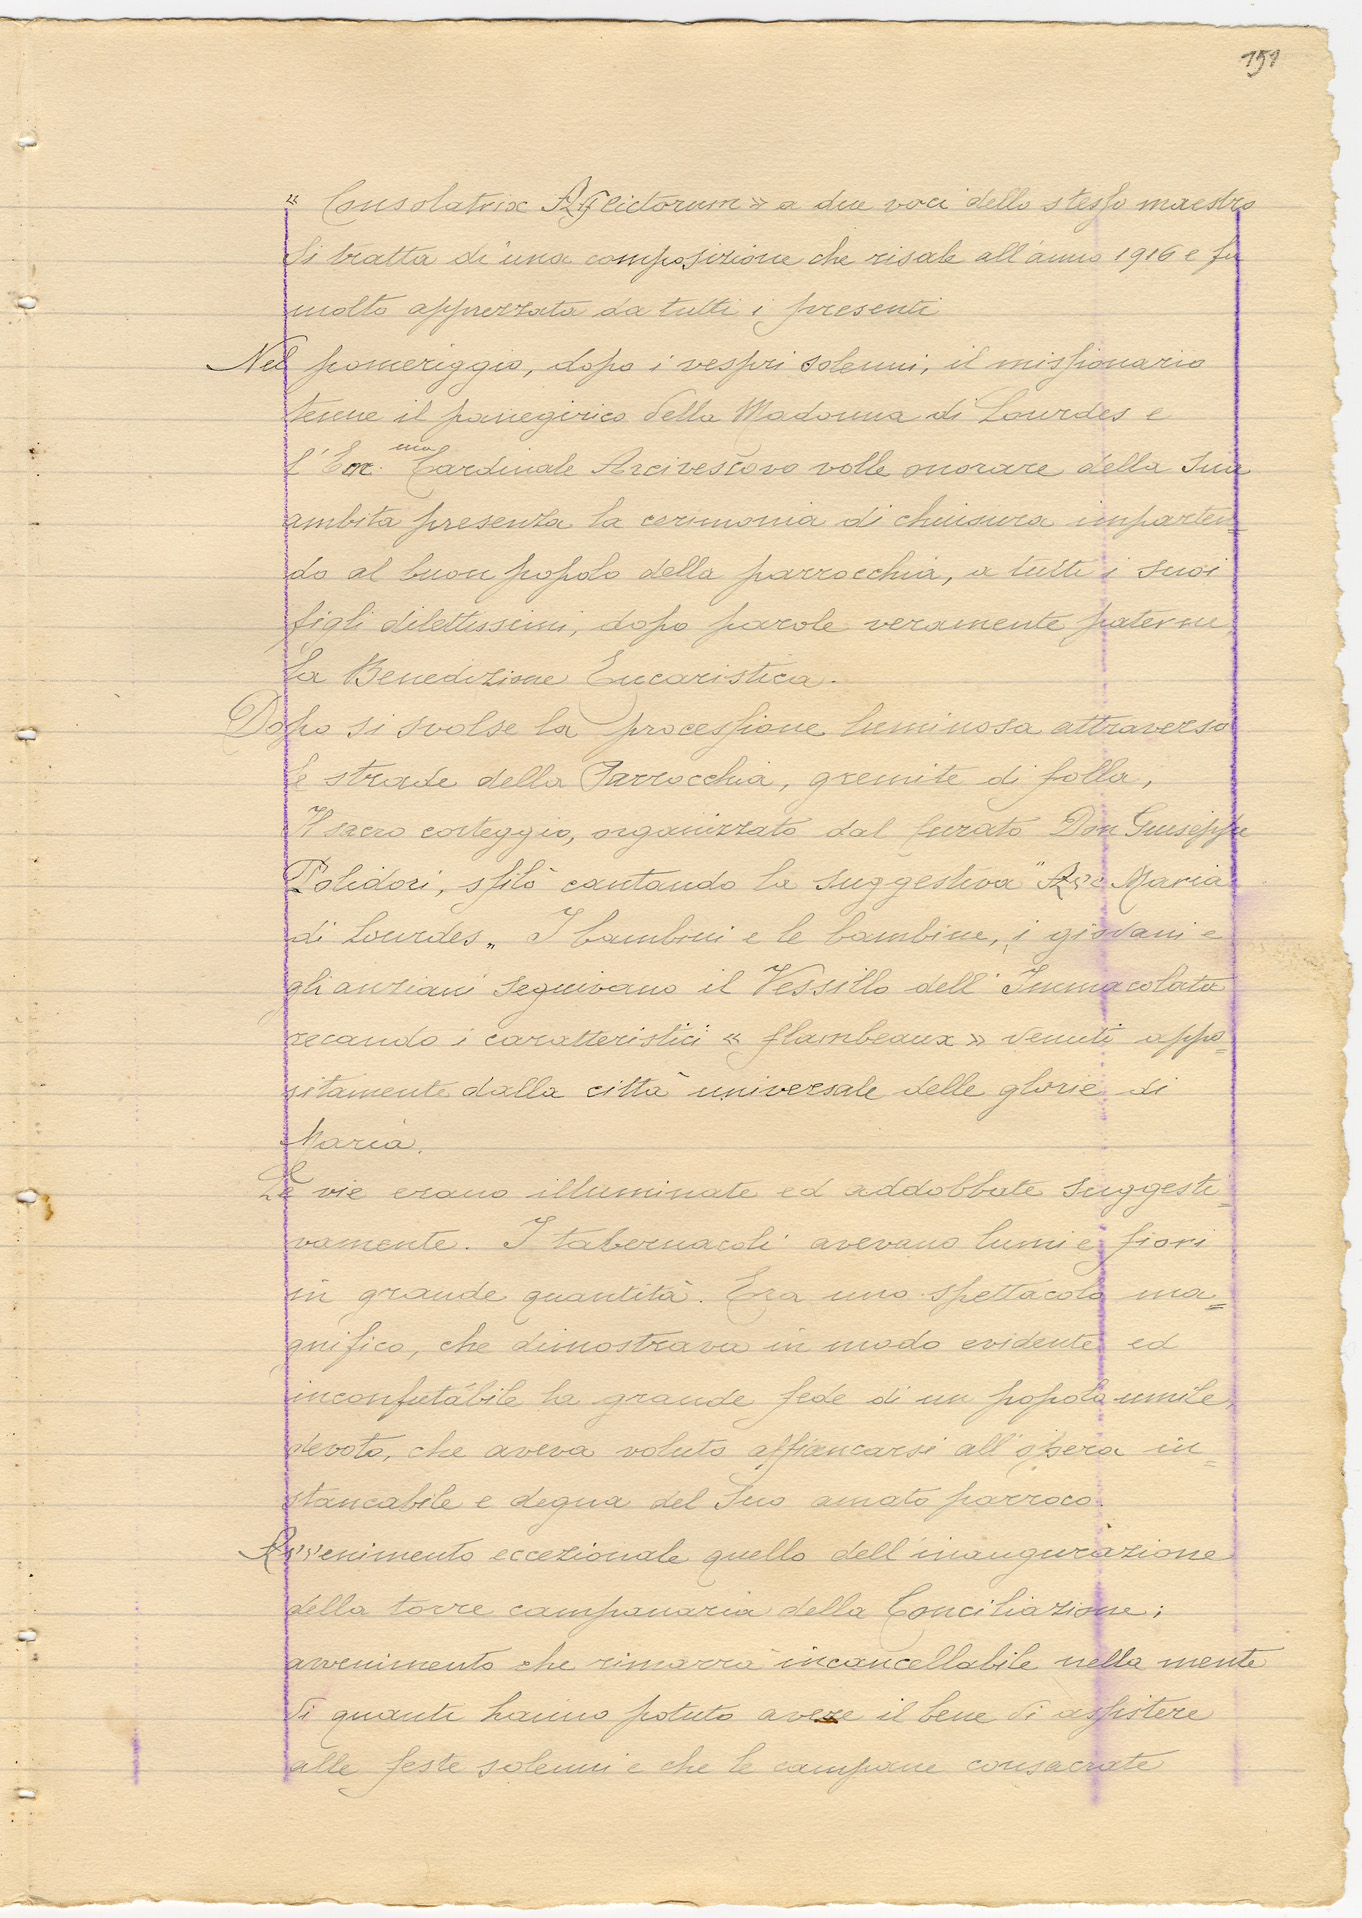 151
« Consolatrix Afflictorum » a due voci dello stesso maestro
Si tratta di una composizione che risale all'anno 1916 e fu
molto apprezzata da tutti i presenti
Nel pomeriggio, dopo i vespri solenni, il missionario
tenne il panegirico della Madonna di Lourdes e
l'Em.mo Cardinale Arcivescovo volle onorare della Sua
ambita presenza la cerimonia di chiusura imparten=
do al buon popolo della parrocchia, a tutti i suoi
figli dilettissimi, dopo parole veramente paterne
la Benedizione Eucaristica.
Dopo si svolse la processione luminosa attraverso
le strade della Parrocchia, gremite di folla,
Il sacro corteggio, organizzato dal Curato Don Giuseppe
Polidori, sfilò cantando la suggestiva "Ave Maria
di Lourdes„ I bambini e le bambine, i giovani e
gli anziani seguivano il Vessillo dell'Immacolata
recando i caratteristici « flambeaux » venuti appo=
sitamente dalla città universale delle glorie di
Maria.
Le vie erano illuminate ed addobbate suggesti=
vamente. I tabernacoli avevano lumi e fiori
in grande quantità. Era uno spettacolo ma=
gnifico, che dimostrava in modo evidente ed
inconfutabile la grande fede di un popolo umile,
devoto, che aveva voluto affiancarsi all'opera in=
stancabile e degna del Suo amato parroco.
Avvenimento eccezionale quello dell'inaugurazione
della torre campanaria della Conciliazione;
avvenimento che rimarrà incancellabile nella mente
di quanti hanno potuto avere il bene di assistere
alle feste solenni e che le campane consacrate